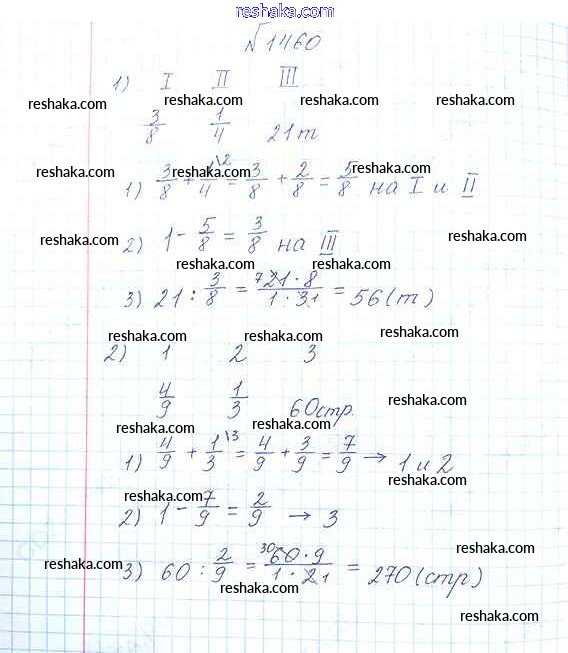 reshaka.com
№1460
1) I II III
reshaka.com reshaka.com reshaka.com
3/8 1/4 21 т
reshaka.com reshaka.com
1) 3/8 + 1/4\2 = 3/8 + 2/8 = 5/8 на I и II
reshaka.com reshaka.com
2) 1 - 5/8 = 3/8 на III
reshaka.com reshaka.com
3) 21 : 3/8 = 7 21 · 8 / 1 · 3 1 = 56 (т)
reshaka.com reshaka.com
2) 1 2 3
4/9 1/3 60 стр.
reshaka.com reshaka.com reshaka.com
1) 4/9 + 1/3\3 = 4/9 + 3/9 = 7/9 → 1 и 2
reshaka.com reshaka.com
2) 1 - 7/9 = 2/9 → 3
reshaka.com reshaka.com
3) 60 : 2/9 = 30 60 · 9 / 1 · 2 1 = 270 (стр)
reshaka.com
reshaka.com